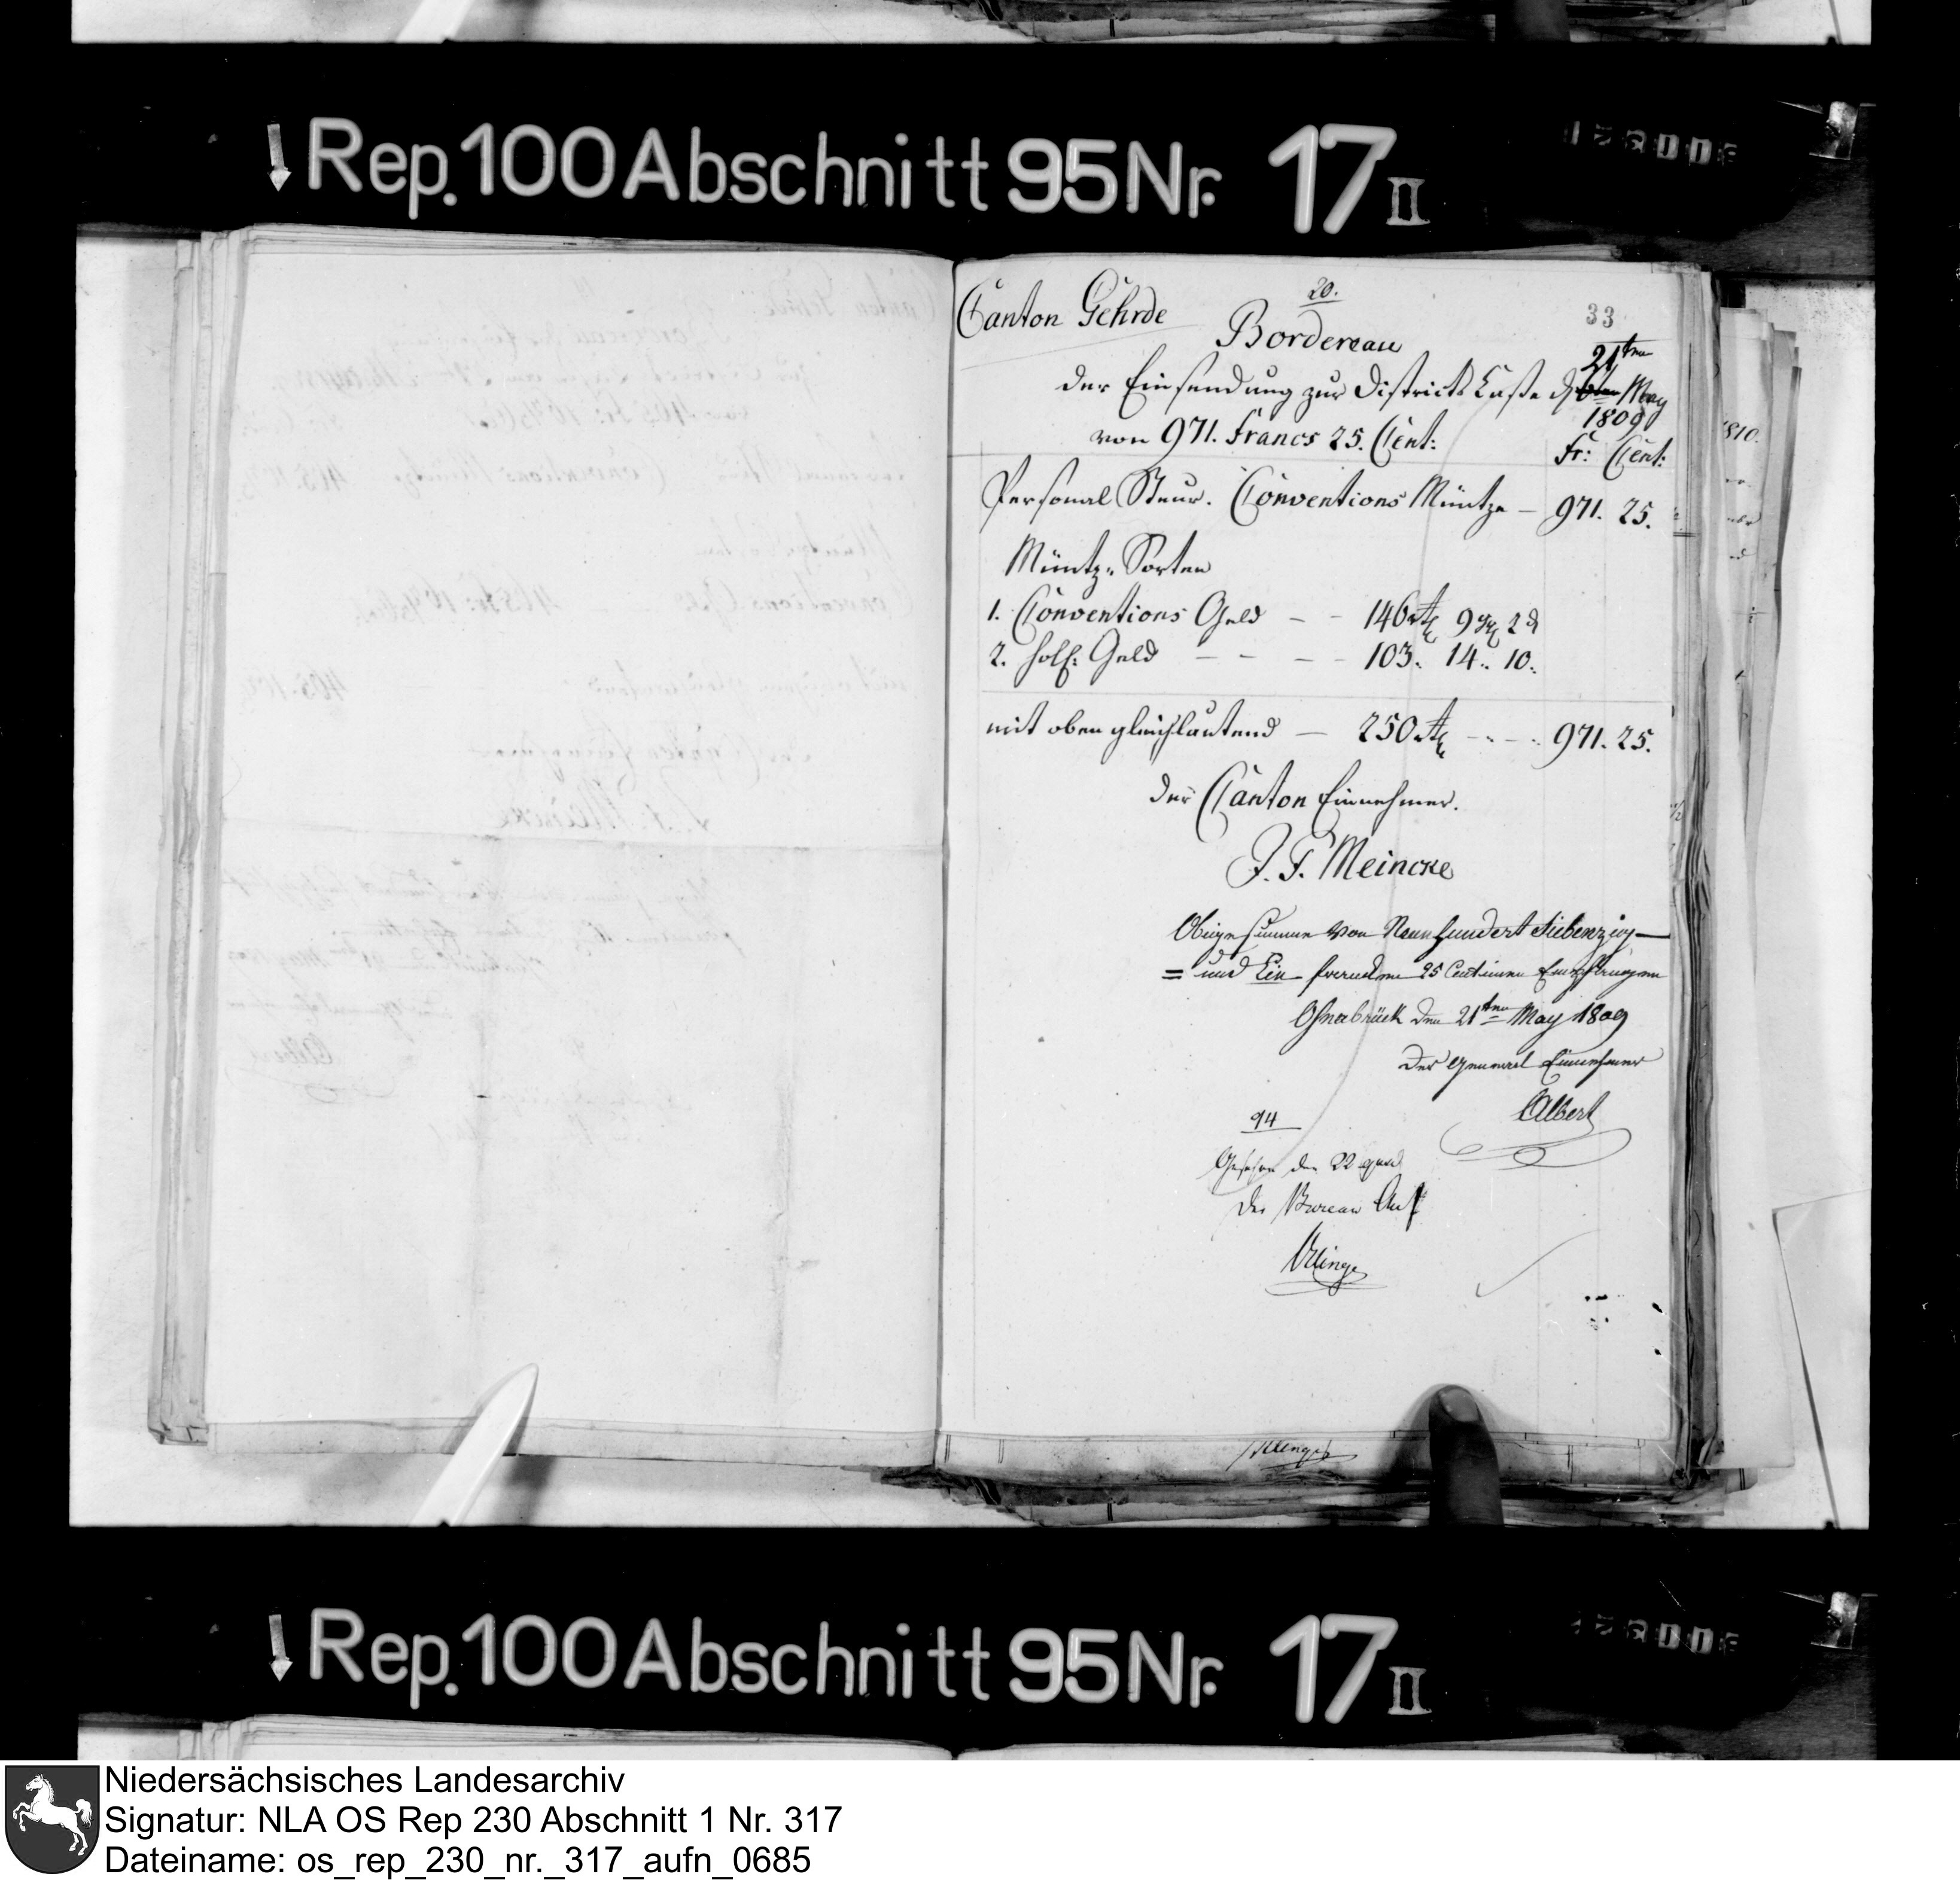 Rep. 100 Abschnitt 95 Nr. 17 II
Canton Gehrde
20.
33
Bordereau
21ten
der Einsendung zur Districts Casse d May
1809
von 971. Francs 25. Cent:
Fr: Cent:
Personal Steur. Conventions Müntze — 971. 25.
Müntz-Sorten
1. Conventions Geld — — 146 rt 9 gg 2 d
2. holl: Geld — — — — 103. 14.. 10.
mit oben gleichlautend — 250 rt - - - 971. 25.
der Canton Einnehmer.
J. F. Meincke
Obige summe von Neunhundert Siebenzig —
= und Ein francken 25 Centimen Empfangen
Osnabrück den 21ten May 1809
Der General Einnehmer
Albert
94
Gesehen den 22
Der Bureau
Rep. 100 Abschnitt 95 Nr. 17 II
Niedersächsisches Landesarchiv
Signatur: NLA OS Rep 230 Abschnitt 1 Nr. 317
Dateiname: os_rep_230_nr._317_aufn_0685